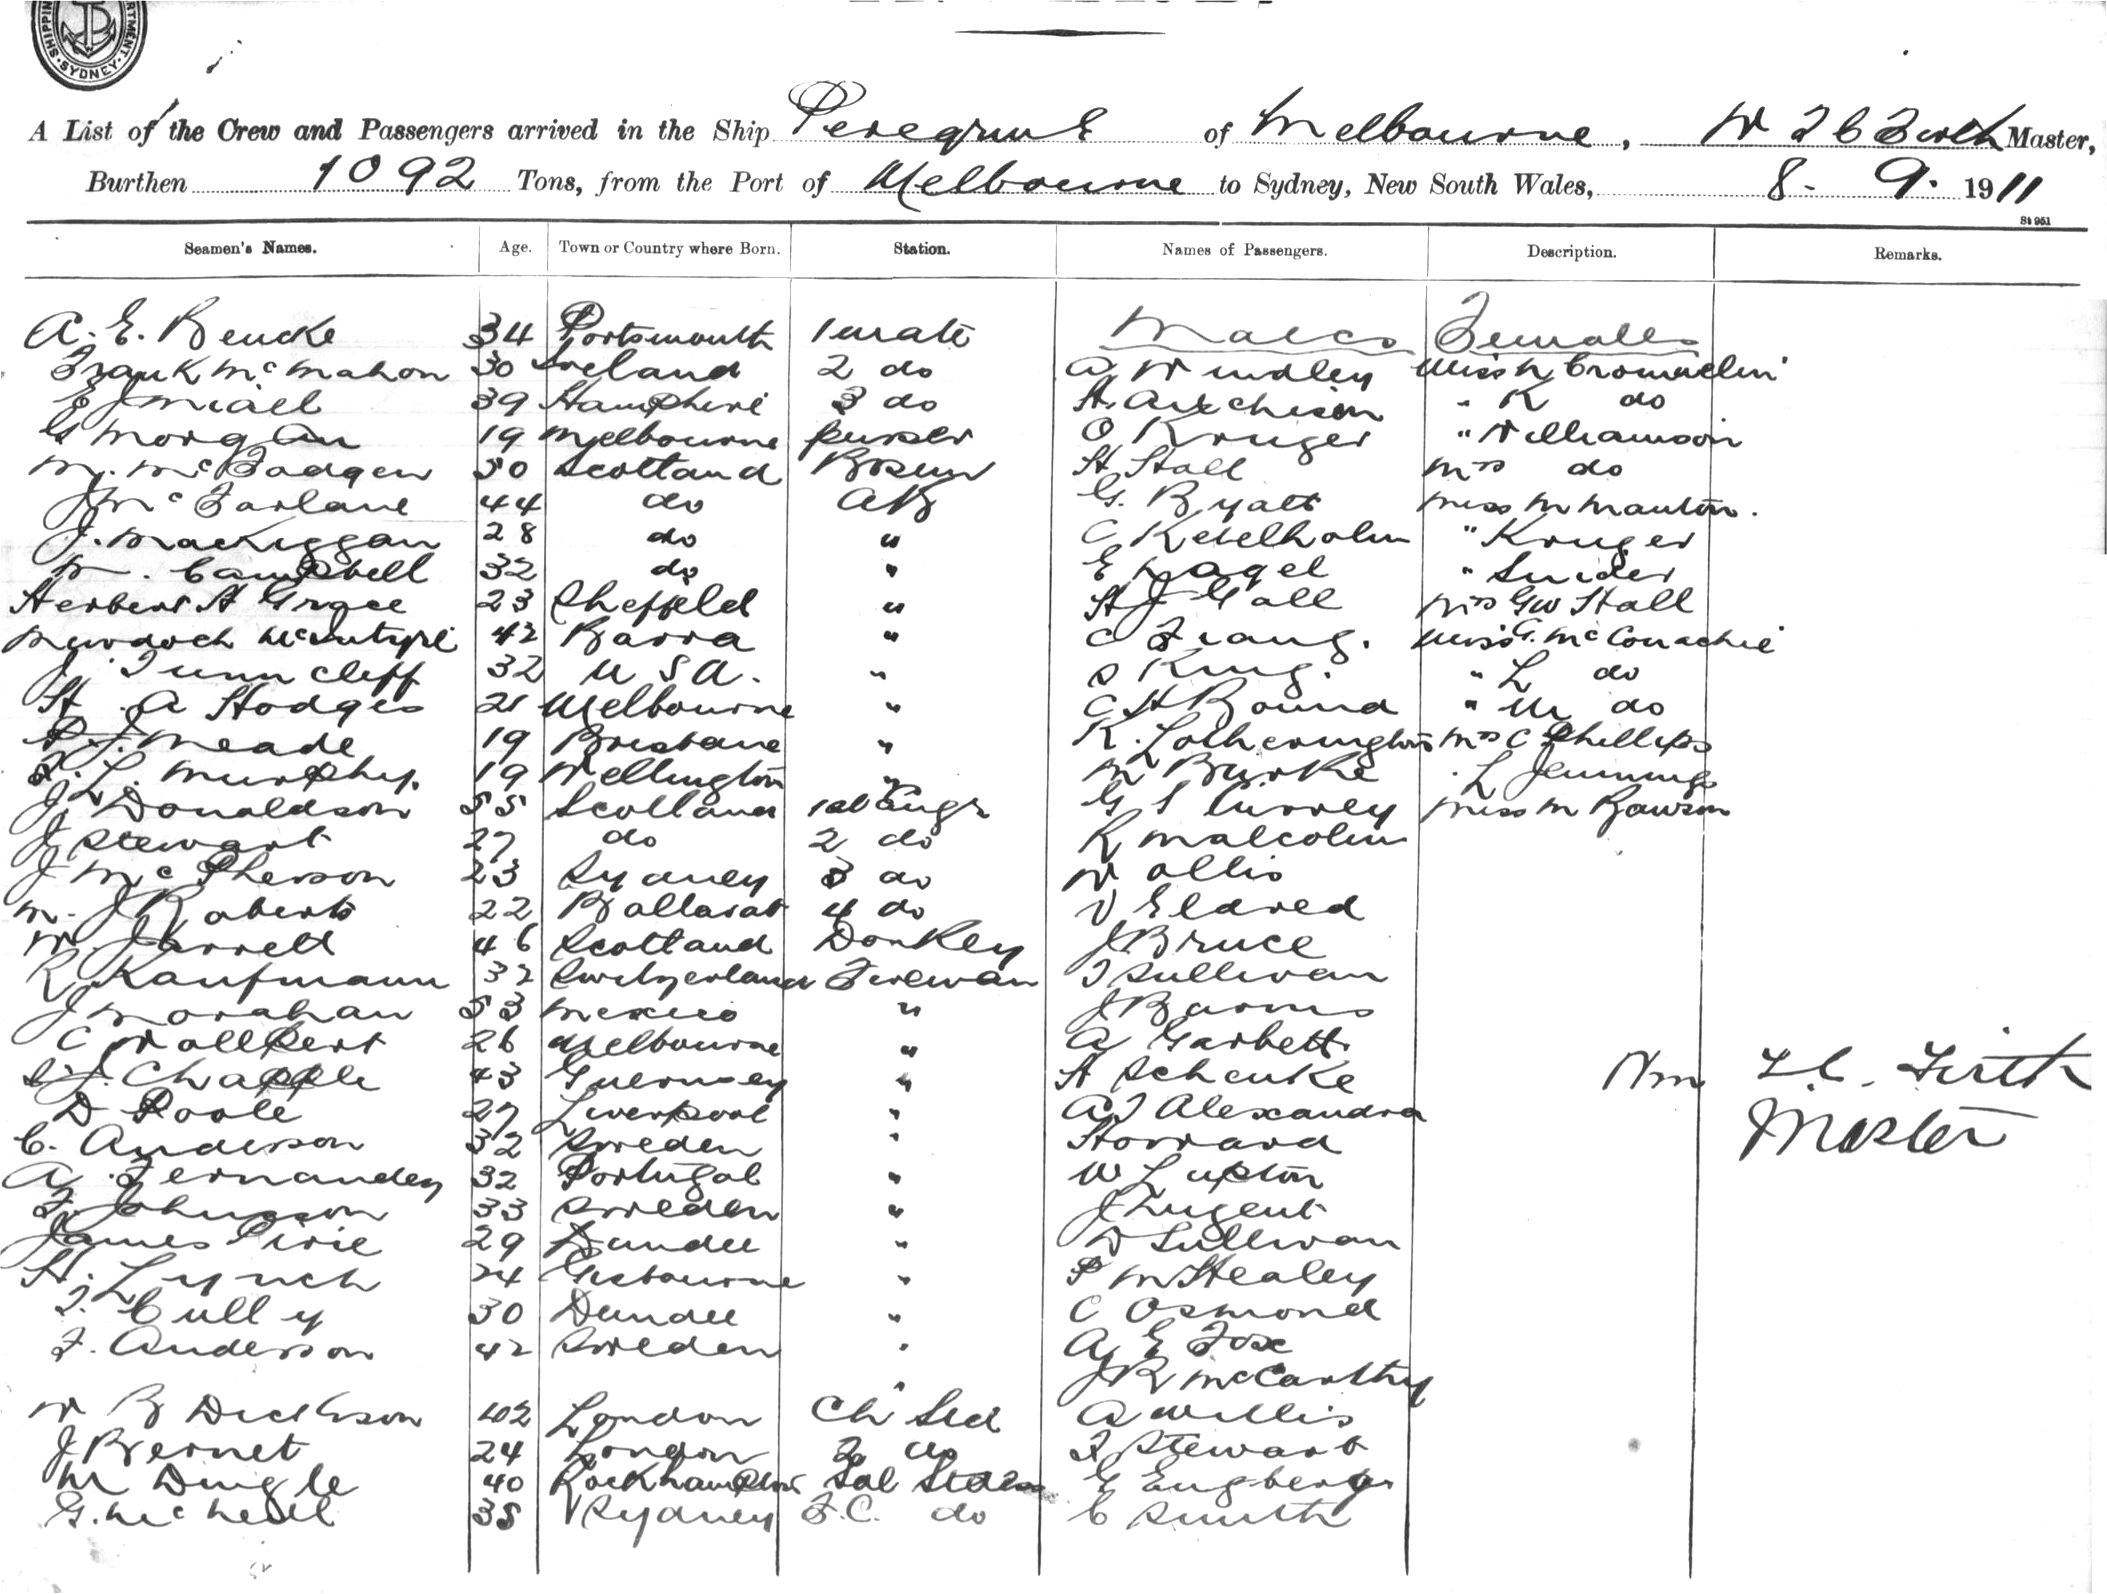 SHIPPING DEPARTMENT. SYDNEY.
A List of the Crew and Passengers arrived in the Ship Peregrine of Melbourne, Master,
Burthen 1092 Tons, from the Port of Melbourne to Sydney, New South Wales, 8. 9. 1911
St 951
Seamen's Names. Age. Town or Country where Born. Station. Names of Passengers. Description. Remarks.
Males Females
A. E. 34 Portsmouth 1 mate
Frank McMahon 30 Ireland 2 do A Windley Miss N Cromachin
E J Miall 39 Hampshire 3 do H. Aitchison " K do
G Morgan 19 Melbourne purser O Kruger " Williamson
M. McFadgen 50 Scotland Bosun H Stall Mrs do
J McFarlane 44 do AB G. Byatt Miss M Manton.
J. MacKiggan 28 do " C Keselholm " Kruger
W. Campbell 32 do " E Nagel " Snider
Herbert H Grace 23 Sheffeld " H J Gall Mrs GW Stall
Murdoch McIntyre 42 Barra " C Frang. Miss G. McConachie
J. Tunncliff 32 U S A. " S King. " L do
H. A Hodges 21 Melbourne " C H Bound " M do
P J. Meade 19 Brisbane " K. Lotherington Mrs C Phillips
L. Murphy. 19 Wellington " M Burke " L Jennings
J. Donaldson 55 Scotland 1st Engr G S Currey Miss M Rawson
J Stewart 27 do 2 do R Malcolm
J McPherson 23 Sydney 3 do W Allis
M. J Roberts 22 Ballarat 4 do V Eldred
W. Jarrett 46 Scotland Donkey J Bruce
R Kaufmann 32 Switzerland Fireman T Sullivan
J Morahan 53 Mexico " J Barns
C Wallpert 26 Melbourne " A Garbett
S J. Chapple 43 Guernsey " H Schenke Wm L. C. Firth
D Poole 27 Liverpool " A J Alexandra Master
C. Anderson 32 Sweden " Horrard
A. Fernandez 32 Portugal " W Lupton
F. Johnsson 33 Sweden " J Nugent
James Pirie 29 Dundee " W Sullivan
H. Lynch 24 Gisbourne " P McHealey
T. Cully 30 Dundee " C Osmond
F. Anderson 42 Sweden " A E Fox
" J R McCarthy
W B Dickson 42 London Ch Std A Willis
J Bernet 24 London 2 do F Stewart
M Dingle 40 Rockhampton Sal Stdess G Engberg
G. McNeill 35 Sydney F.C. do C Smith